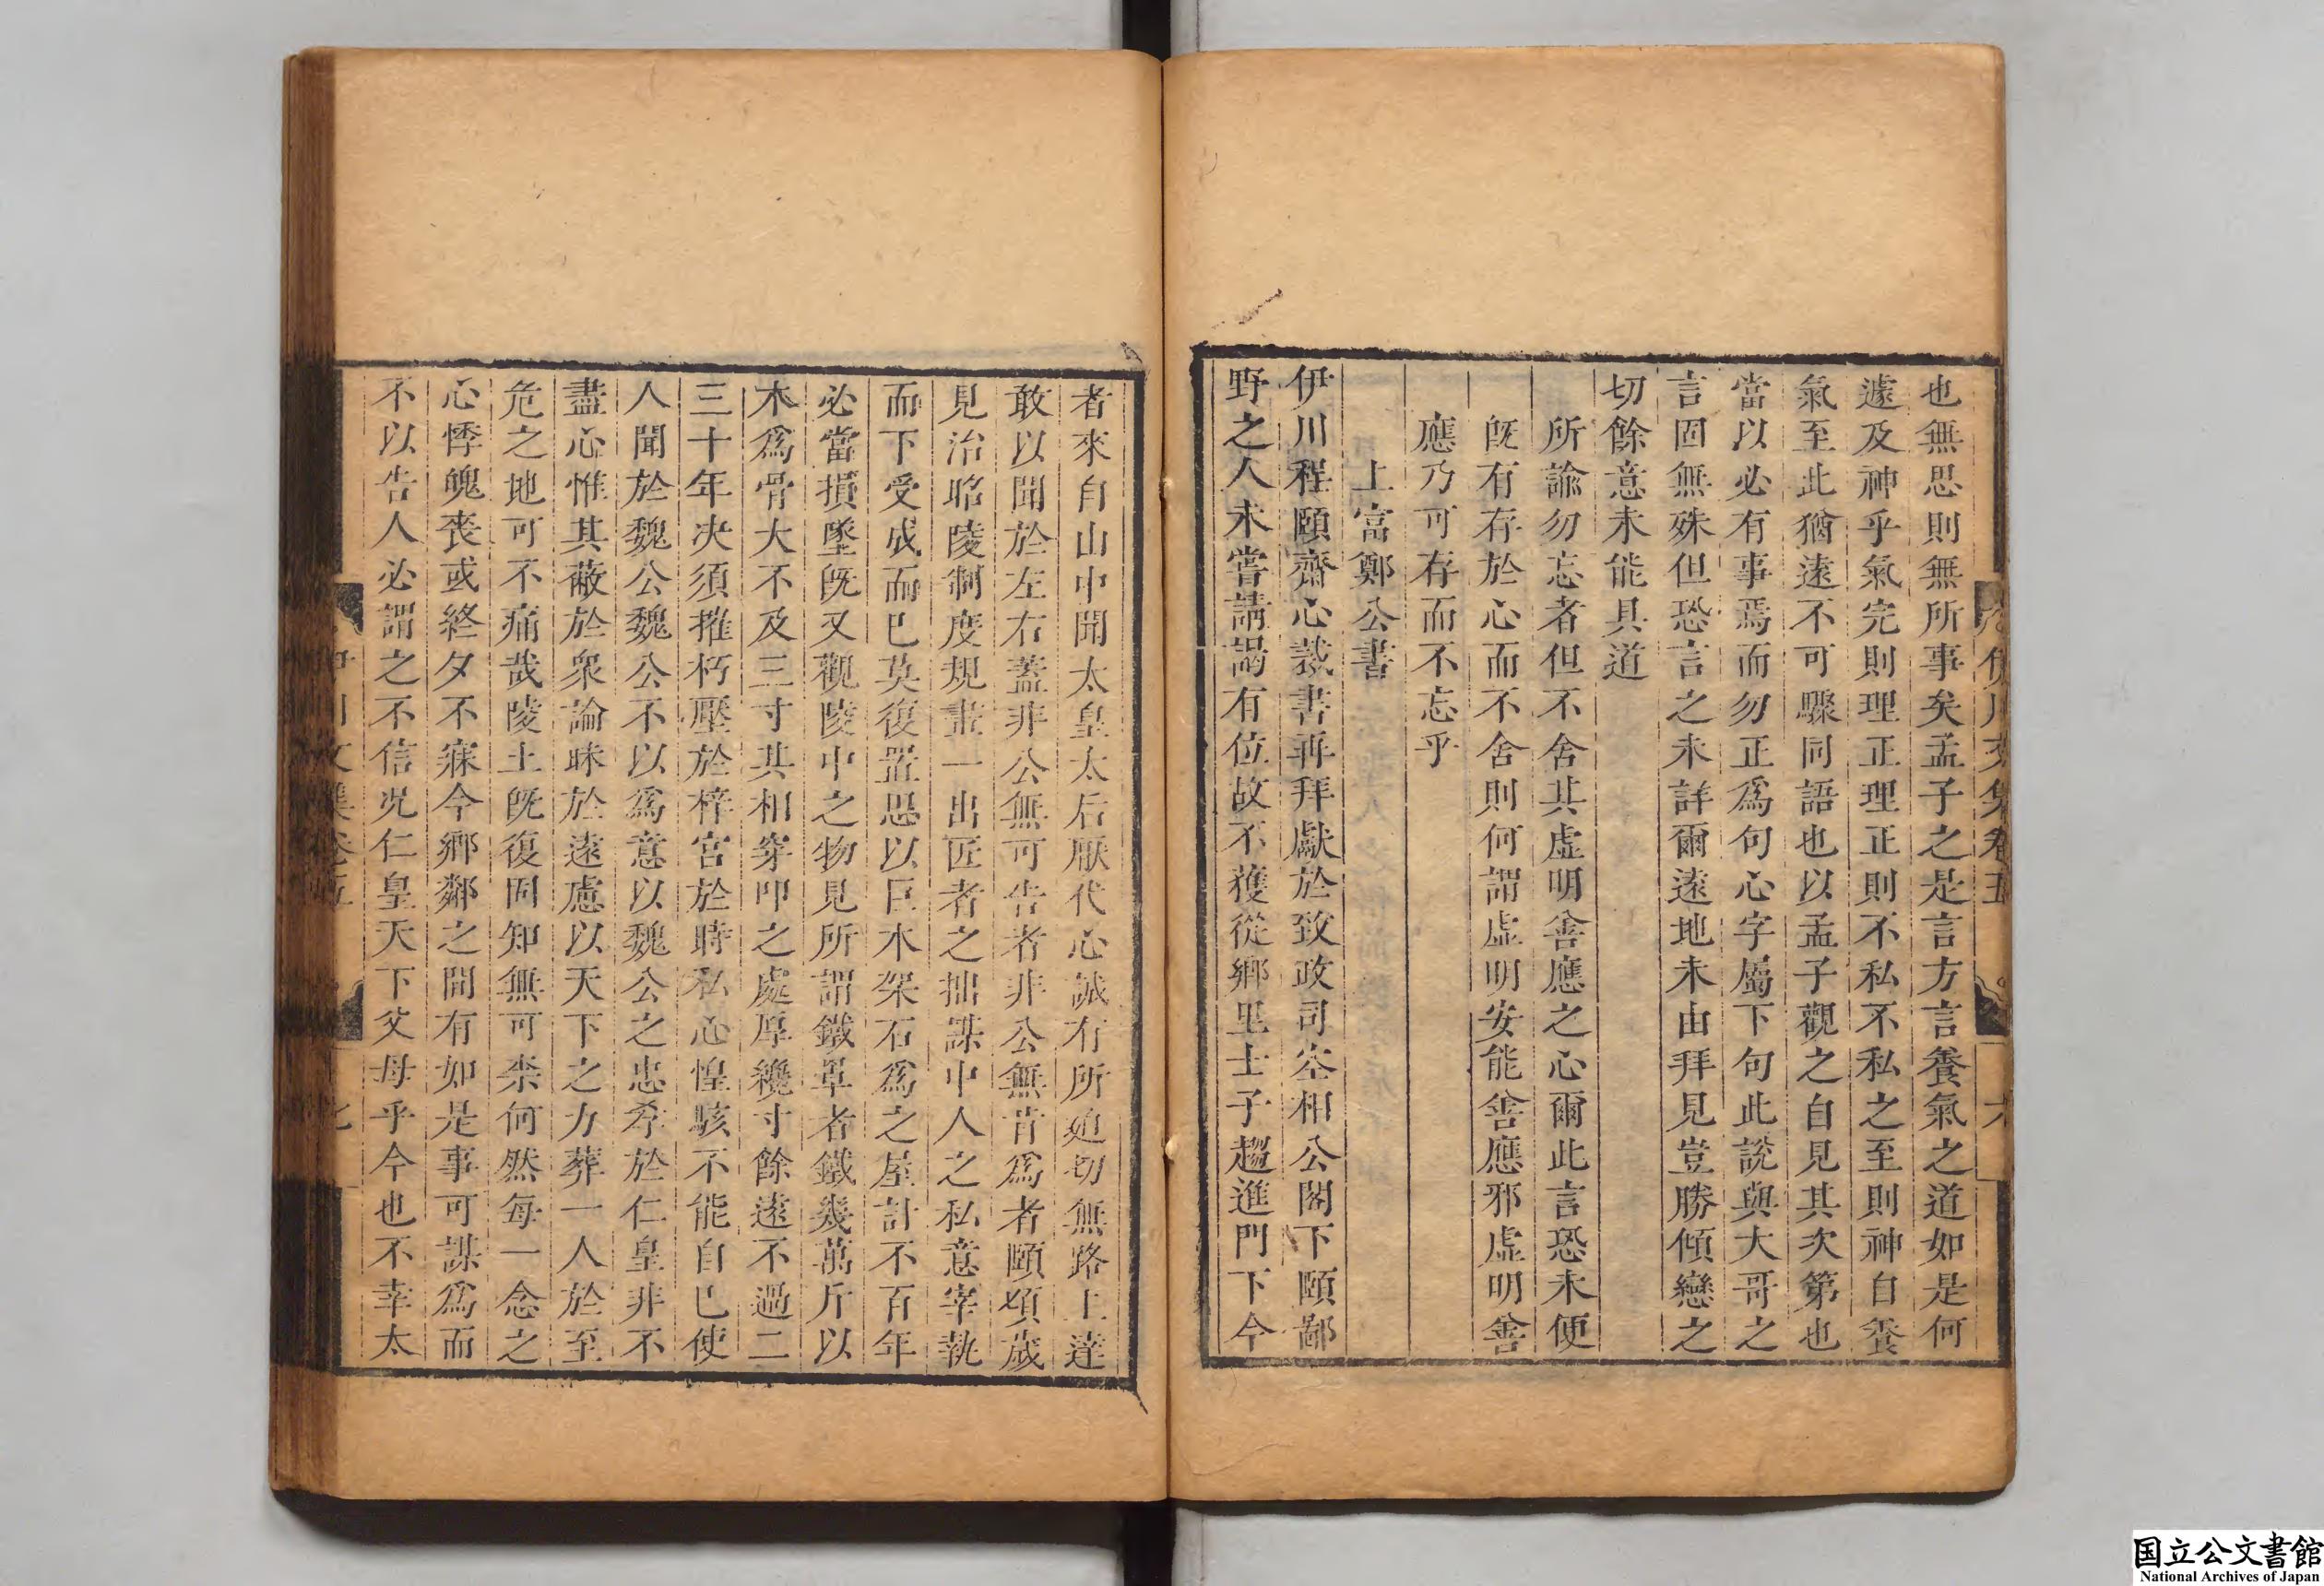 也無思則無所事矣孟子之是言方言養氣之道如是何
遽及神乎氣完則理正理正則不私不私之至則神自養
氣至此猶遠不可驟同語也以孟子觀之自見其次第也
當以必有事焉而勿正爲句心字屬下句此說與大哥之
言固無殊但恐言之未詳爾遠地未由拜見豈勝傾戀之
切餘意未能具道
所諭勿忘者但不舍其虛明善應之心爾此言恐未便
旣有存於心而不舍則何謂虛明安能善應邪虛明善
應乃可存而不忘乎
上富鄭公書
伊川程頤齋心裁書再拜獻於致政司空相公閣下頤鄙
野之人未嘗請謁有位故不獲從鄉里士子趨進門下今
者來自山中聞太皇太后厭代心誠有所迫切無路上達
敢以聞於左右蓋非公無可告者非公無肯爲者頤頃歲
見治昭陵制度規畫一出匠者之拙謀中人之私意宰執
而下受成而已莫復置思以巨木架石爲之屋計不百年
必當損墜旣又觀陵中之物見所謂鐵罩者鐵幾萬斤以
木爲骨大不及三寸其相穿叩之處厚纔寸餘遠不過二
三十年決須摧朽壓於梓宮於時私心惶駭不能自已使
人聞於魏公魏公不以爲意以魏公之忠孝於仁皇非不
盡心惟其蔽於衆論昧於遠慮以天下之力葬一人於至
危之地可不痛哉陵土旣復固知無可柰何然每一念之
心悸魄喪或終夕不寐今鄉鄰之間有如是事可謀爲而
不以告人必謂之不信況仁皇天下父母乎今也不幸太
伊川文集卷五
国立公文書館
National Archives of Japan